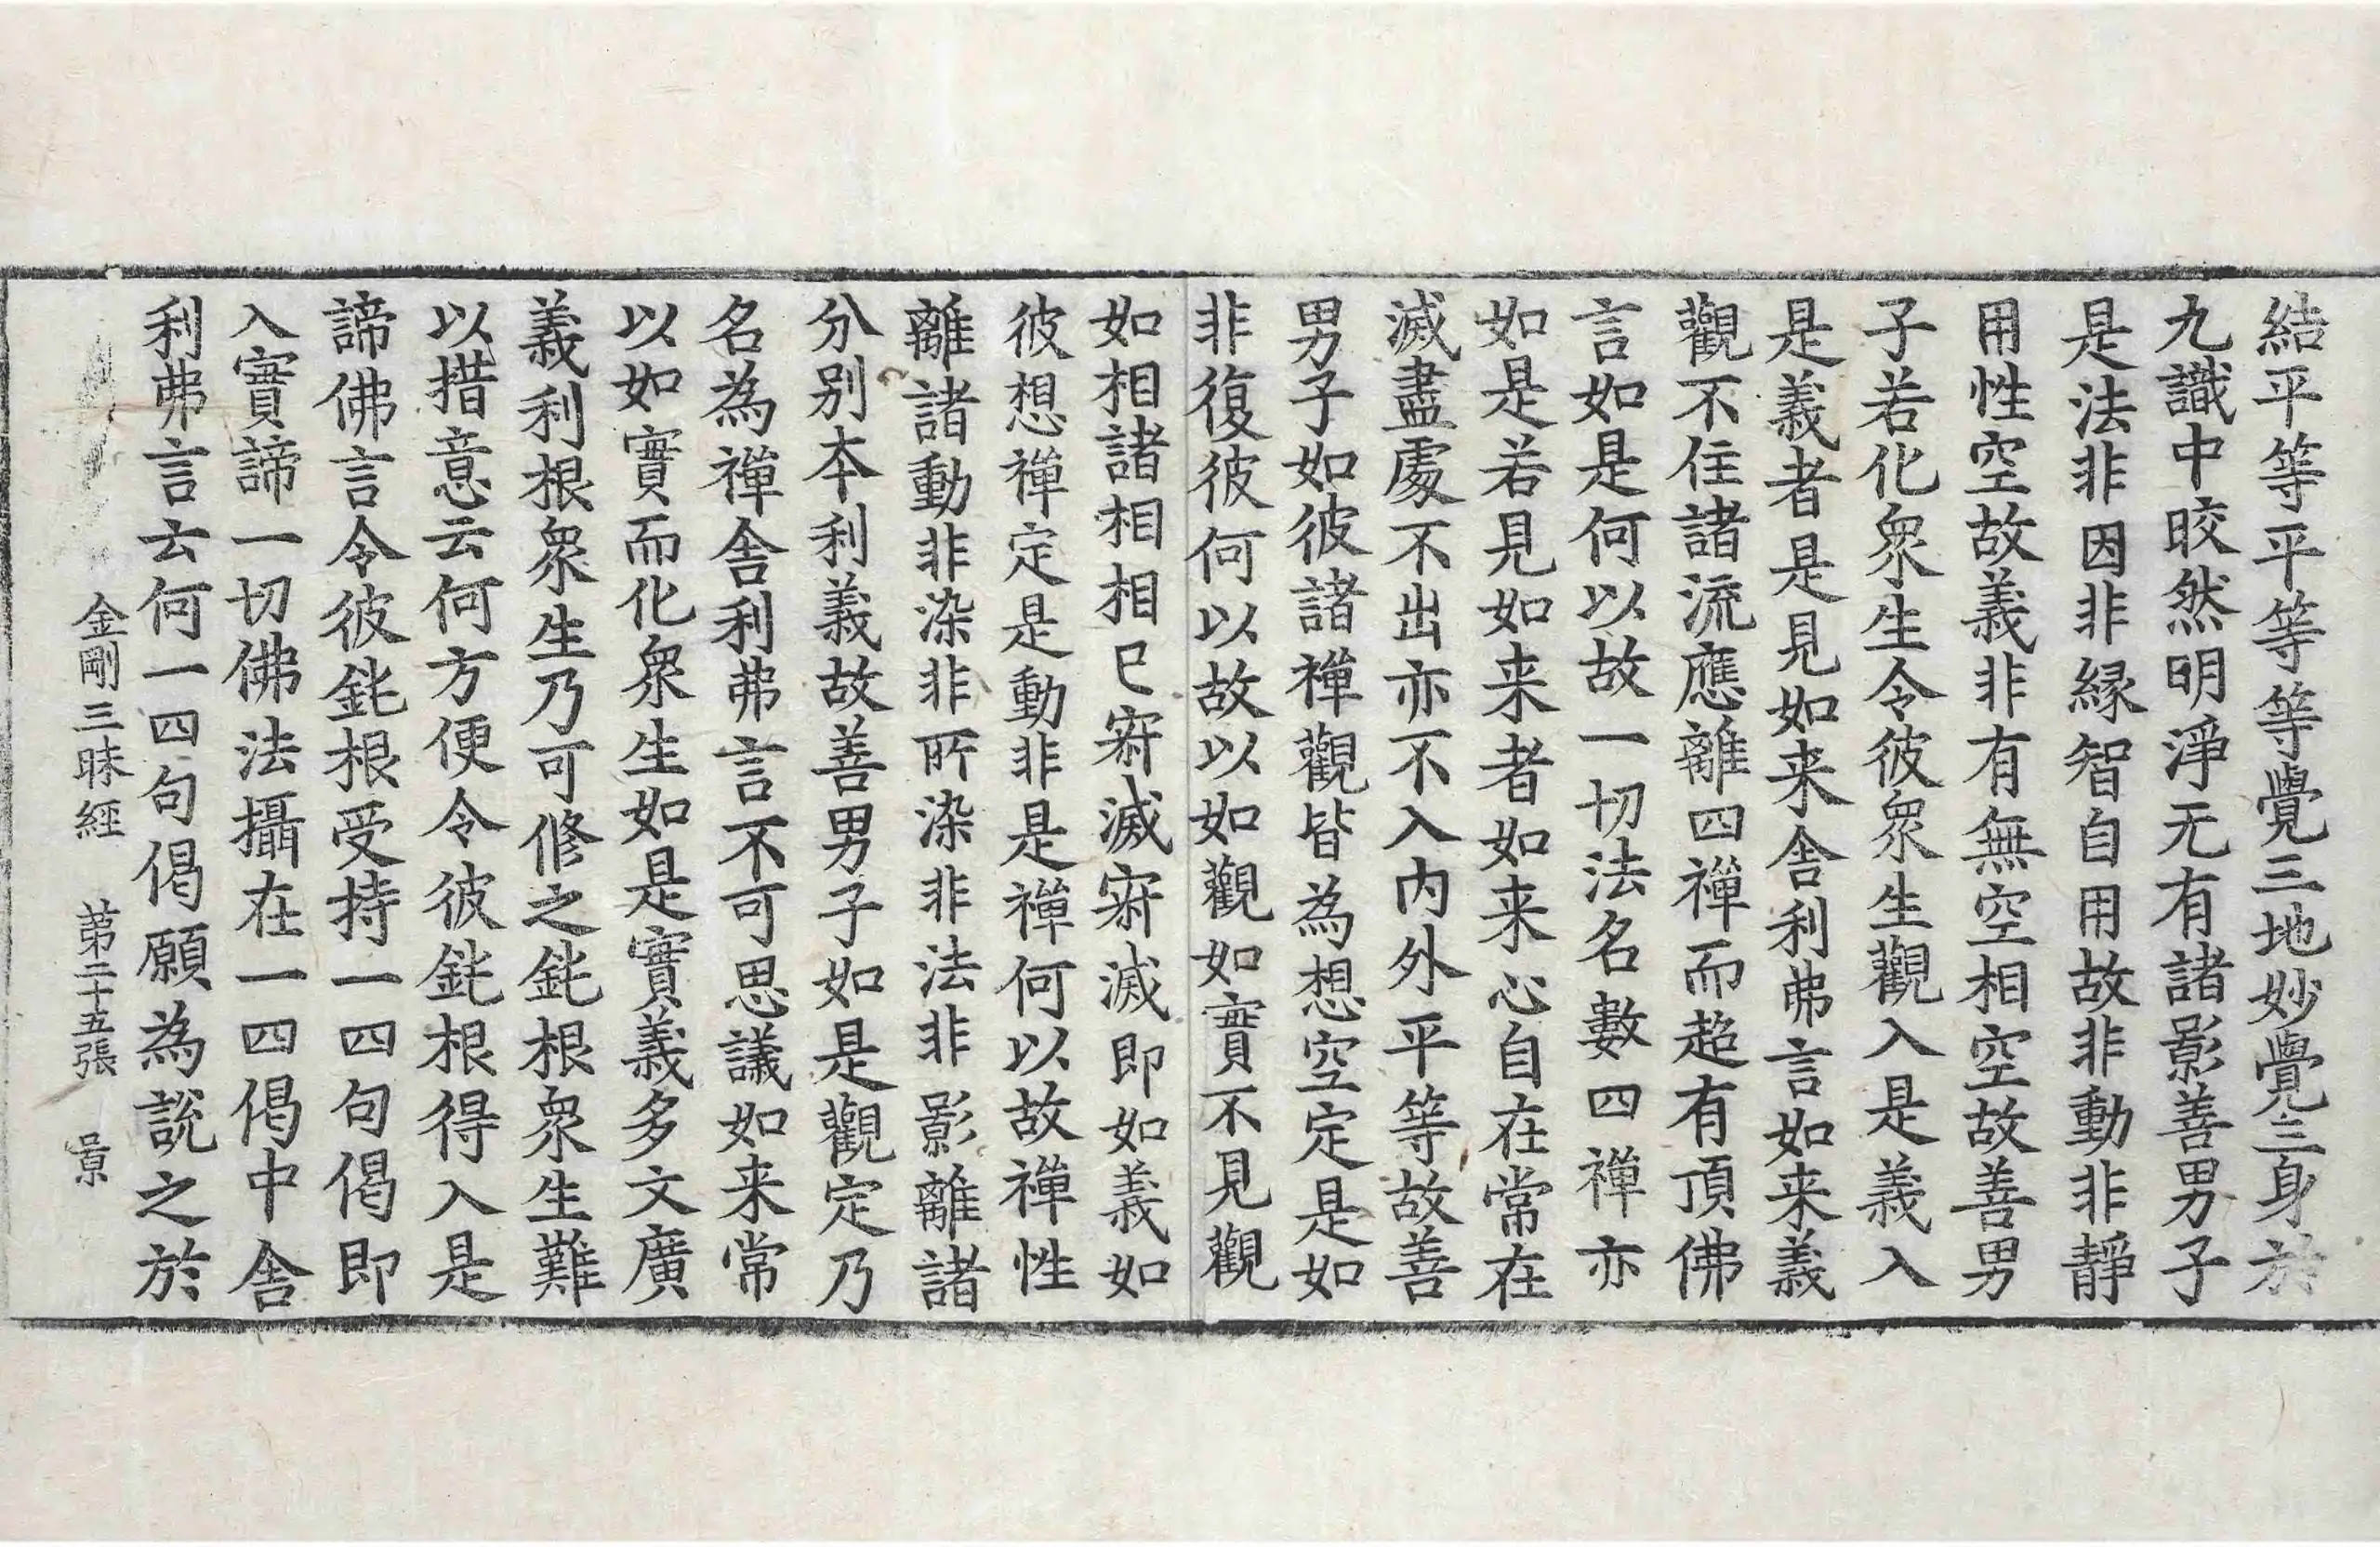 結平等平等等覺三地妙覺三身於
九識中晈然明淨无有諸影善男子
是法非因非縁智自用故非動非靜
用性空故義非有無空相空故善男
子若化衆生令彼衆生觀入是義入
是義者是見如来舎利弗言如来義
觀不住諸流應離四禪而超有頂佛
言如是何以故一切法名數四禪亦
如是若見如来者如来心自在常在
滅盡處不出亦不入内外平等故善
男子如彼諸禪觀皆為想空定是如
非復彼何以故以如觀如實不見觀
如相諸相相已㝛滅㝛滅即如義如
彼想禪定是動非是禪何以故禪性
離諸動非染非所染非法非影離諸
分別本利義故善男子如是觀定乃
名為禪舎利弗言不可思議如来常
以如實而化衆生如是實義多文廣
義利根衆生乃可修之鈍根衆生難
以措意云何方便令彼鈍根得入是
諦佛言令彼鈍根受持一四句偈即
入實諦一切佛法攝在一四偈中舎
利弗言云何一四句偈願為説之於
金剛三昧經 第二十五張 景